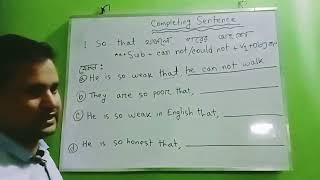 Completing Sentence
1 So that থাকলে পরের অংশে
***Sub + can not/could not + V1 + Obj
যেমন:
ⓐ He is so weak that he can not walk
ⓑ They are so poor that,
ⓒ He is so weak in English that,
ⓓ He is so honest that,